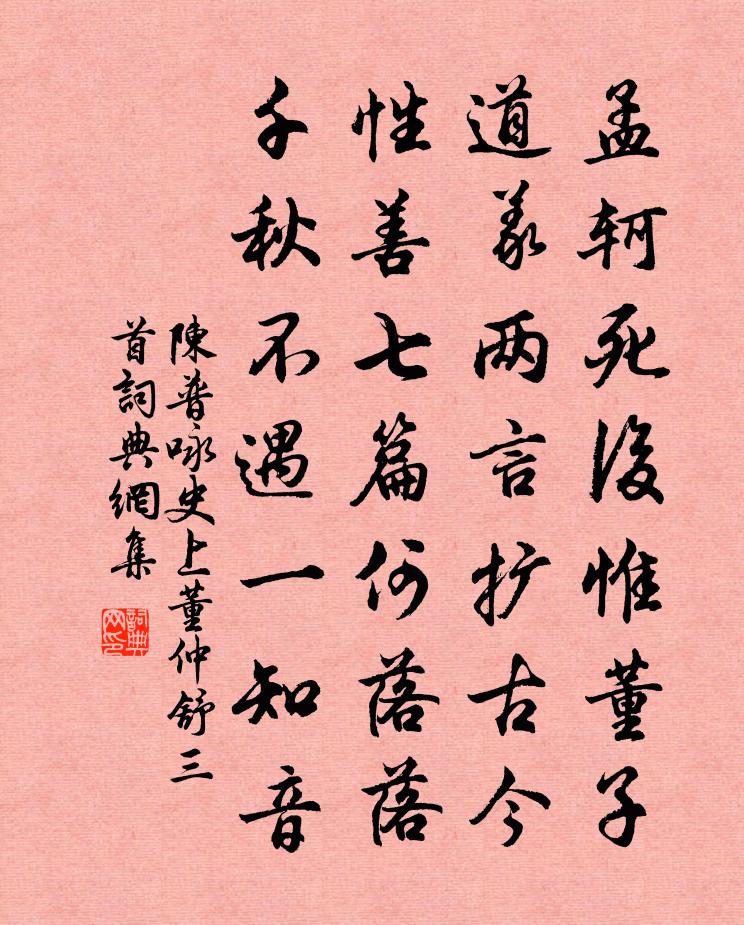 孟轲死後惟董子
道義两言扩古今
性善七篇何落落
千秋不遇一知音
陳普咏史上董仲舒三
首詞典網集
詞典網印